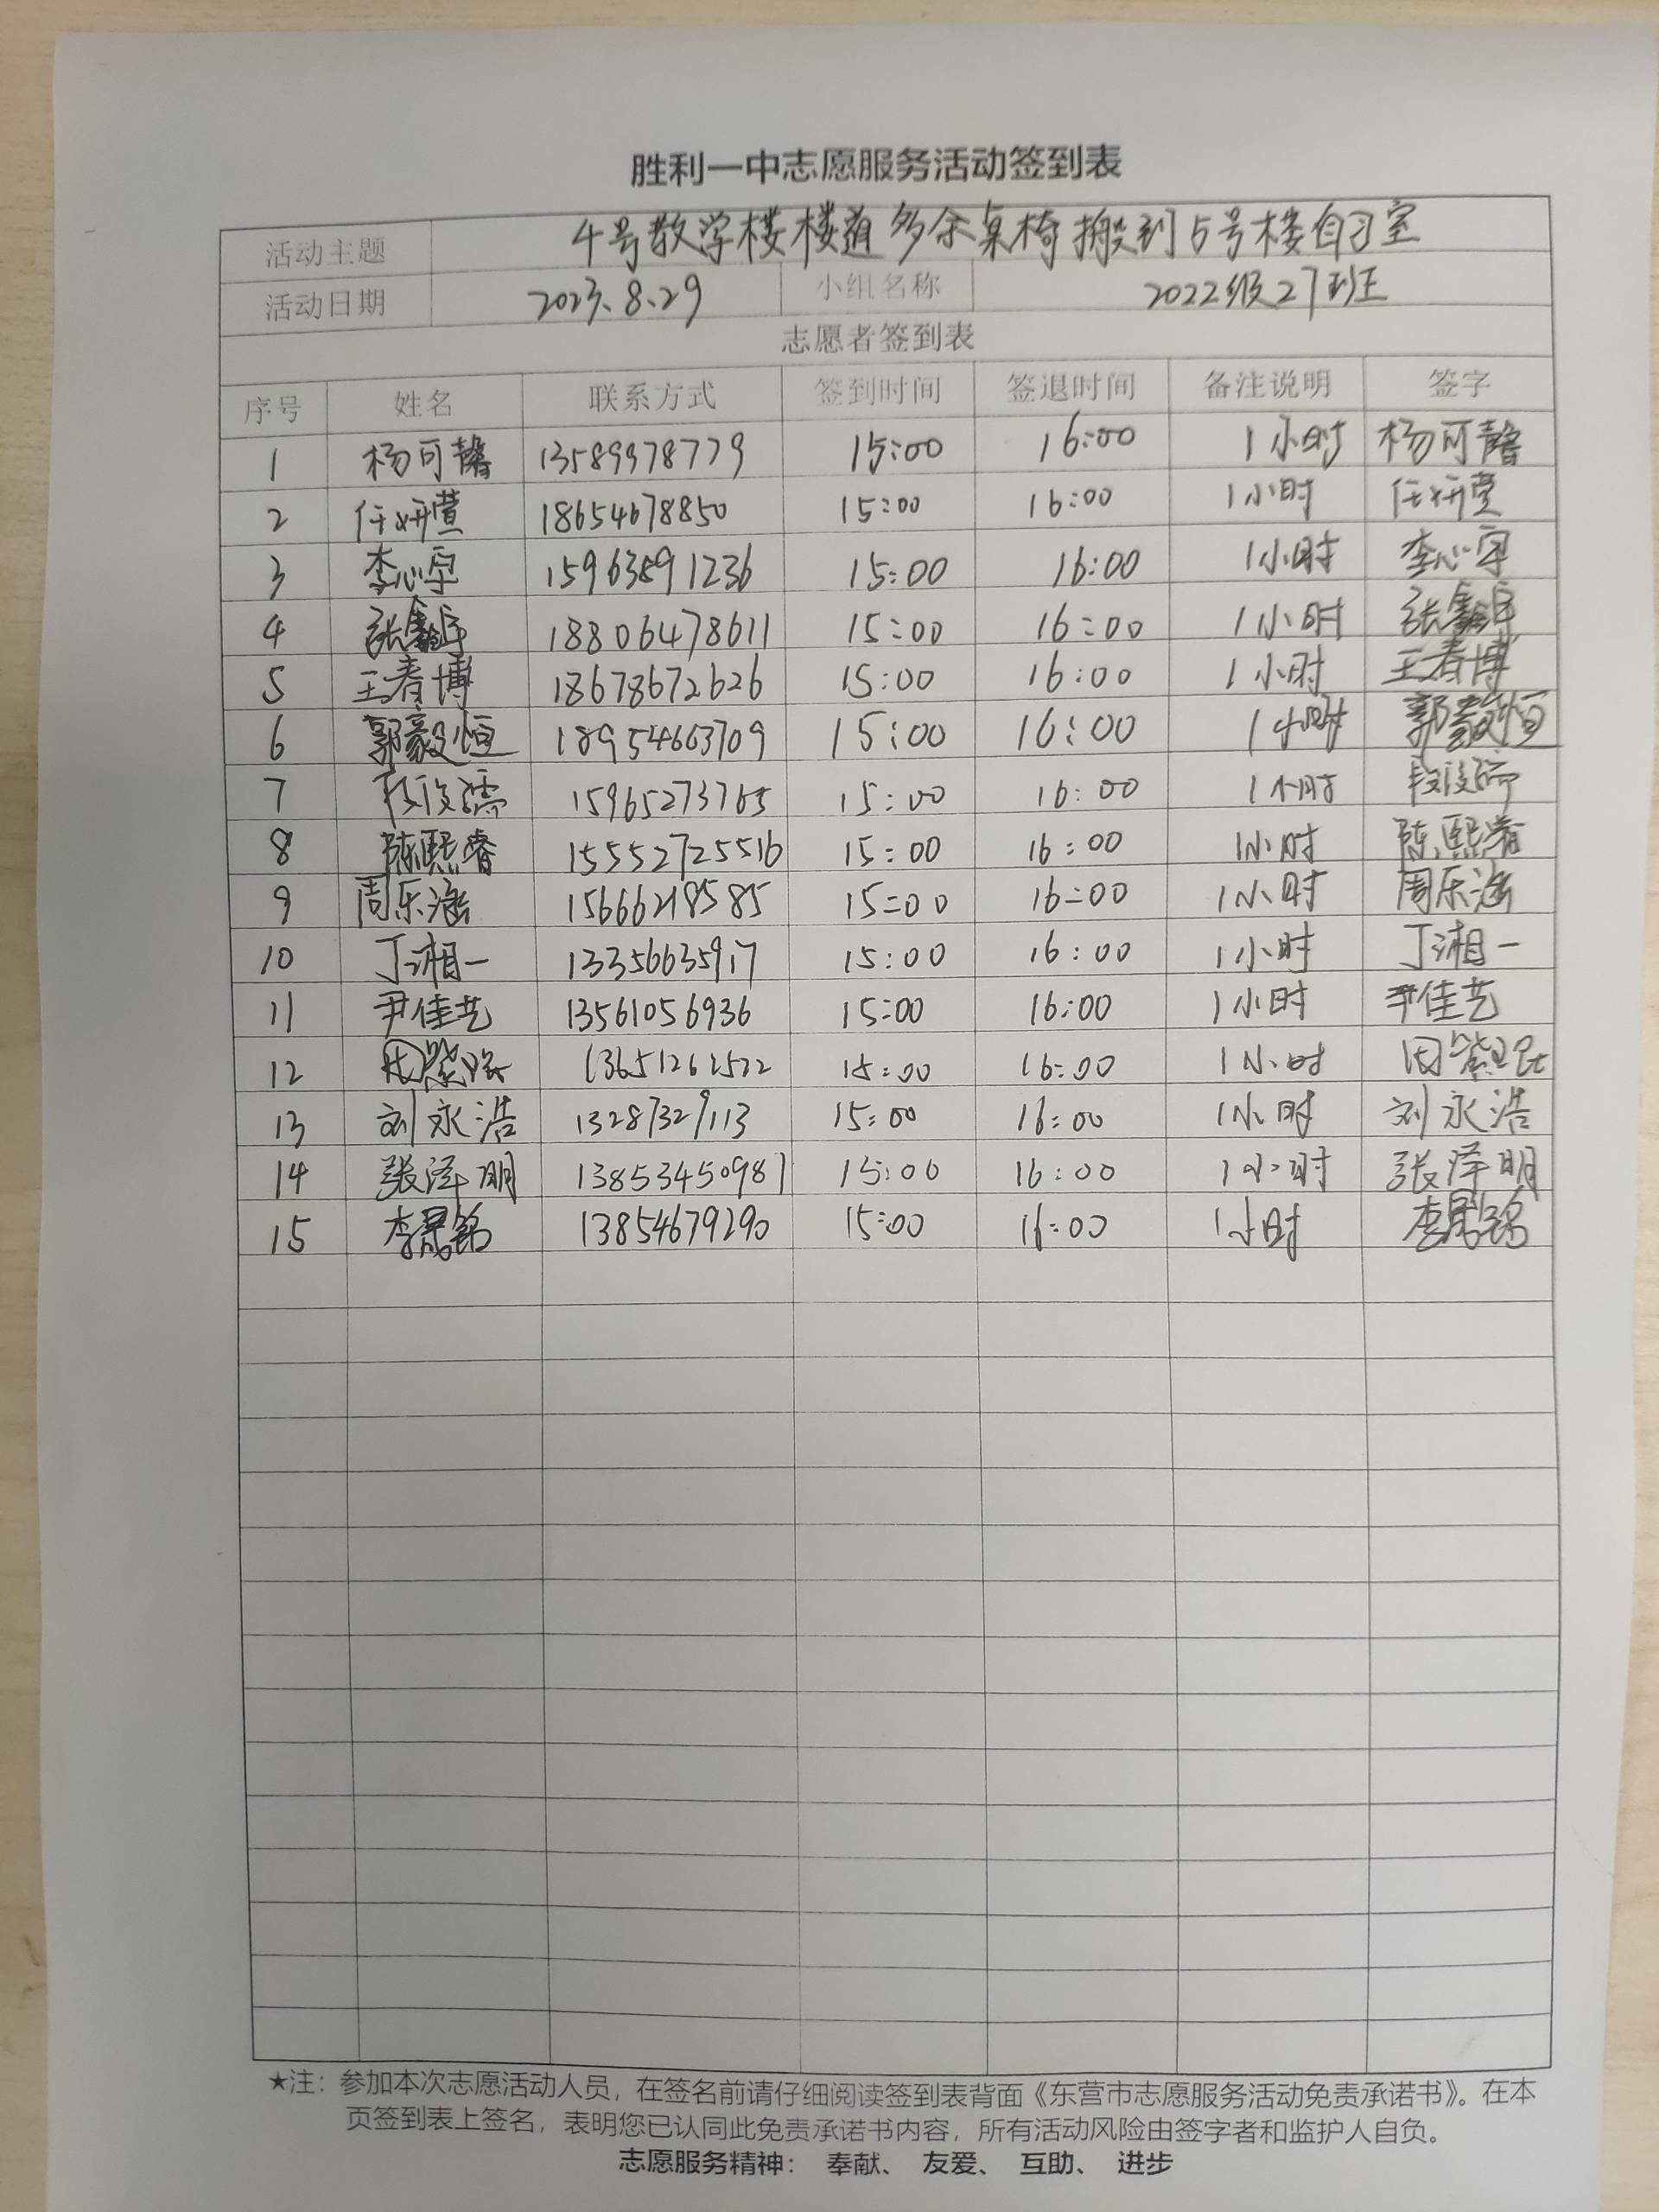 胜利一中志愿服务活动签到表
活动主题 4号教学楼楼道多余桌椅搬到5号楼自习室
活动日期 2023.8.29 小组名称 2022级27班
志愿者签到表
序号 姓名 联系方式 签到时间 签退时间 备注说明 签字
1 杨可馨 13589978779 15:00 16:00 1小时 杨可馨
2 任妍萱 18654678850 15:00 16:00 1小时 任妍萱
3 李心宇 15963591236 15:00 16:00 1小时 李心宇
4 张鑫宇 18806478611 15:00 16:00 1小时 张鑫宇
5 王春博 18678672626 15:00 16:00 1小时 王春博
6 郭毅恒 18954663709 15:00 16:00 1小时 郭毅恒
7 15965273765 15:00 16:00 1小时
8 陈熙睿 15552725516 15:00 16:00 1小时 陈熙睿
9 周乐涵 15666218585 15:00 16:00 1小时 周乐涵
10 丁湘一 13356635917 15:00 16:00 1小时 丁湘一
11 尹佳艺 13561056936 15:00 16:00 1小时 尹佳艺
12 13651262522 15:00 16:00 1小时
13 刘永浩 13287329113 15:00 16:00 1小时 刘永浩
14 张泽明 13853450987 15:00 16:00 1小时 张泽明
15 13854679290 15:00 16:00 1小时
★注：参加本次志愿活动人员，在签名前请仔细阅读签到表背面《东营市志愿服务活动免责承诺书》。在本
页签到表上签名，表明您已认同此免责承诺书内容，所有活动风险由签字者和监护人自负。
志愿服务精神： 奉献、 友爱、 互助、 进步